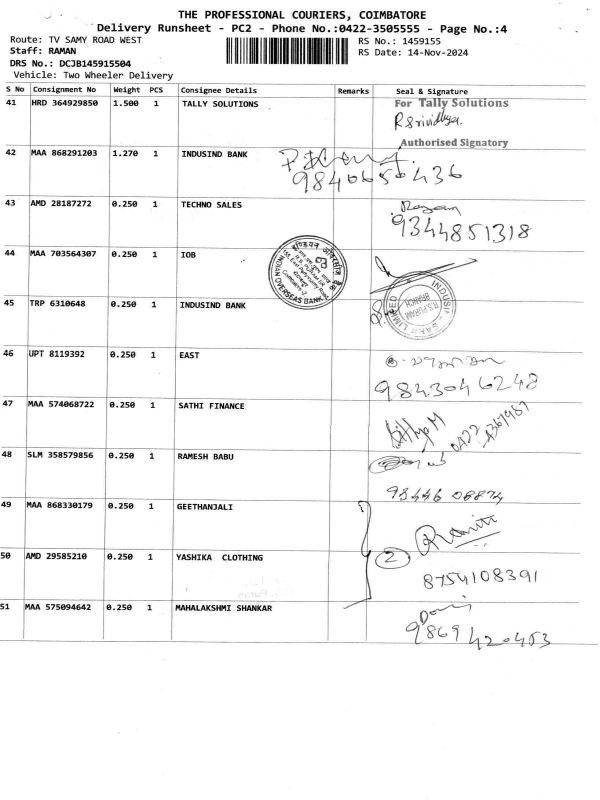 THE PROFESSIONAL COURIERS, COIMBATORE
Delivery Runsheet - PC2 - Phone No.:0422-3505555 - Page No.:4
Route: TV SAMY ROAD WEST RS No.: 1459155
Staff: RAMAN RS Date: 14-Nov-2024
DRS No.: DCJB145915504
Vehicle: Two Wheeler Delivery
S No Consignment No Weight PCS Consignee Details Remarks Seal & Signature
41 HRD 364929850 1.500 1 TALLY SOLUTIONS For Tally Solutions
R Srividhya
Authorised Signatory
42 MAA 868291203 1.270 1 INDUSIND BANK
9840656436
43 AMD 28187272 0.250 1 TECHNO SALES
9344851318
44 MAA 703564307 0.250 1 IOB
INDIAN OVERSEAS BANK
45 TRP 6310648 0.250 1 INDUSIND BANK
INDUSIND BANK LIMITED
R.S. PURAM
BRANCH
46 UPT 8119392 0.250 1 EAST
9843046248
47 MAA 574068722 0.250 1 SATHI FINANCE
Sathya M
0422
48 SLM 358579856 0.250 1 RAMESH BABU
98446 08874
49 MAA 868330179 0.250 1 GEETHANJALI
50 AMD 29585210 0.250 1 YASHIKA CLOTHING
2
8754108391
51 MAA 575094642 0.250 1 MAHALAKSHMI SHANKAR
9869420453